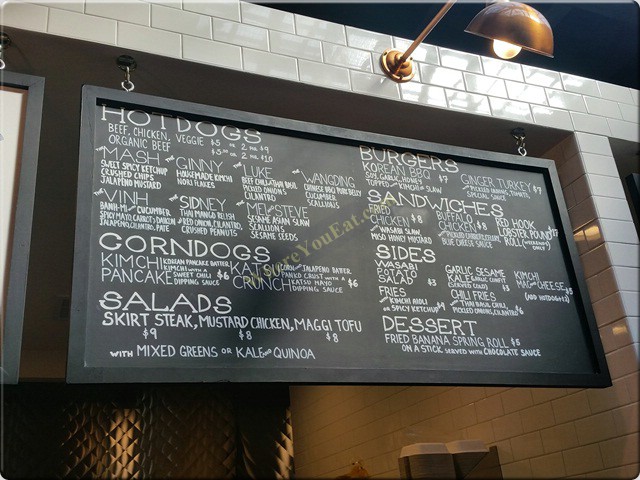 HOTDOGS
BEEF, CHICKEN, VEGGIE $5 OR 2 FOR $9
ORGANIC BEEF $5.50 OR 2 FOR $10
MASH
SWEET SPICY KETCHUP
CRUSHED CHIPS
JALAPENO MUSTARD
GINNY
HOUSEMADE KIMCHI
NORI FLAKES
LUKE
PICKLED ONIONS
CILANTRO
WANGDING
CHINESE BBQ PORK BELLY
CUCUMBER
SCALLIONS
VINH
BANH-MI CUCUMBER,
SPICY MAYO, CARROTS, DAIKON,
JALAPENO, CILANTRO, PATE
SIDNEY
THAI MANGO RELISH
RED ONION, CILANTRO,
CRUSHED PEANUTS
MEI STEVE
SESAME ASIAN SLAW
SCALLIONS
SESAME SEEDS
CORNDOGS
KIMCHI KOREAN PANCAKE BATTER
PANCAKE KIMCHI WITH A SWEET CHILI DIPPING SAUCE $6
KATSU CORN JALAPENO BATTER,
CRUNCH PANKO CRUST WITH A KATSU MAYO DIPPING SAUCE $6
SALADS
SKIRT STEAK, MUSTARD CHICKEN, MAGGI TOFU
$9 $8 $8
WITH MIXED GREENS OR KALE AND QUINOA
BURGERS
KOREAN BBQ $7
SOY, GARLIC, HONEY
TOPPED WITH KIMCHI SLAW
GINGER TURKEY $7
PICKLED ONIONS, TOMATO,
SPECIAL SAUCE
SANDWICHES
FRIED
CHICKEN $8
WASABI SLAW
MISO HONEY MUSTARD
BUFFALO
CHICKEN $8
BLUE CHEESE SAUCE
RED HOOK
LOBSTER POUND
ROLL (WEEKENDS ONLY) $17
SIDES
WASABI
POTATO
SALAD $3
GARLIC SESAME
KALE $3
KIMCHI
MAC AND CHEESE $5
(ADD HOTDOG $2)
FRIES
WITH KIMCHI AIOLI
OR SPICY KETCHUP $3
CHILI FRIES
THAI BASIL CHILI,
PICKLED ONIONS, CILANTRO $6
DESSERT
FRIED BANANA SPRING ROLL $5
ON A STICK SERVED WITH CHOCOLATE SAUCE